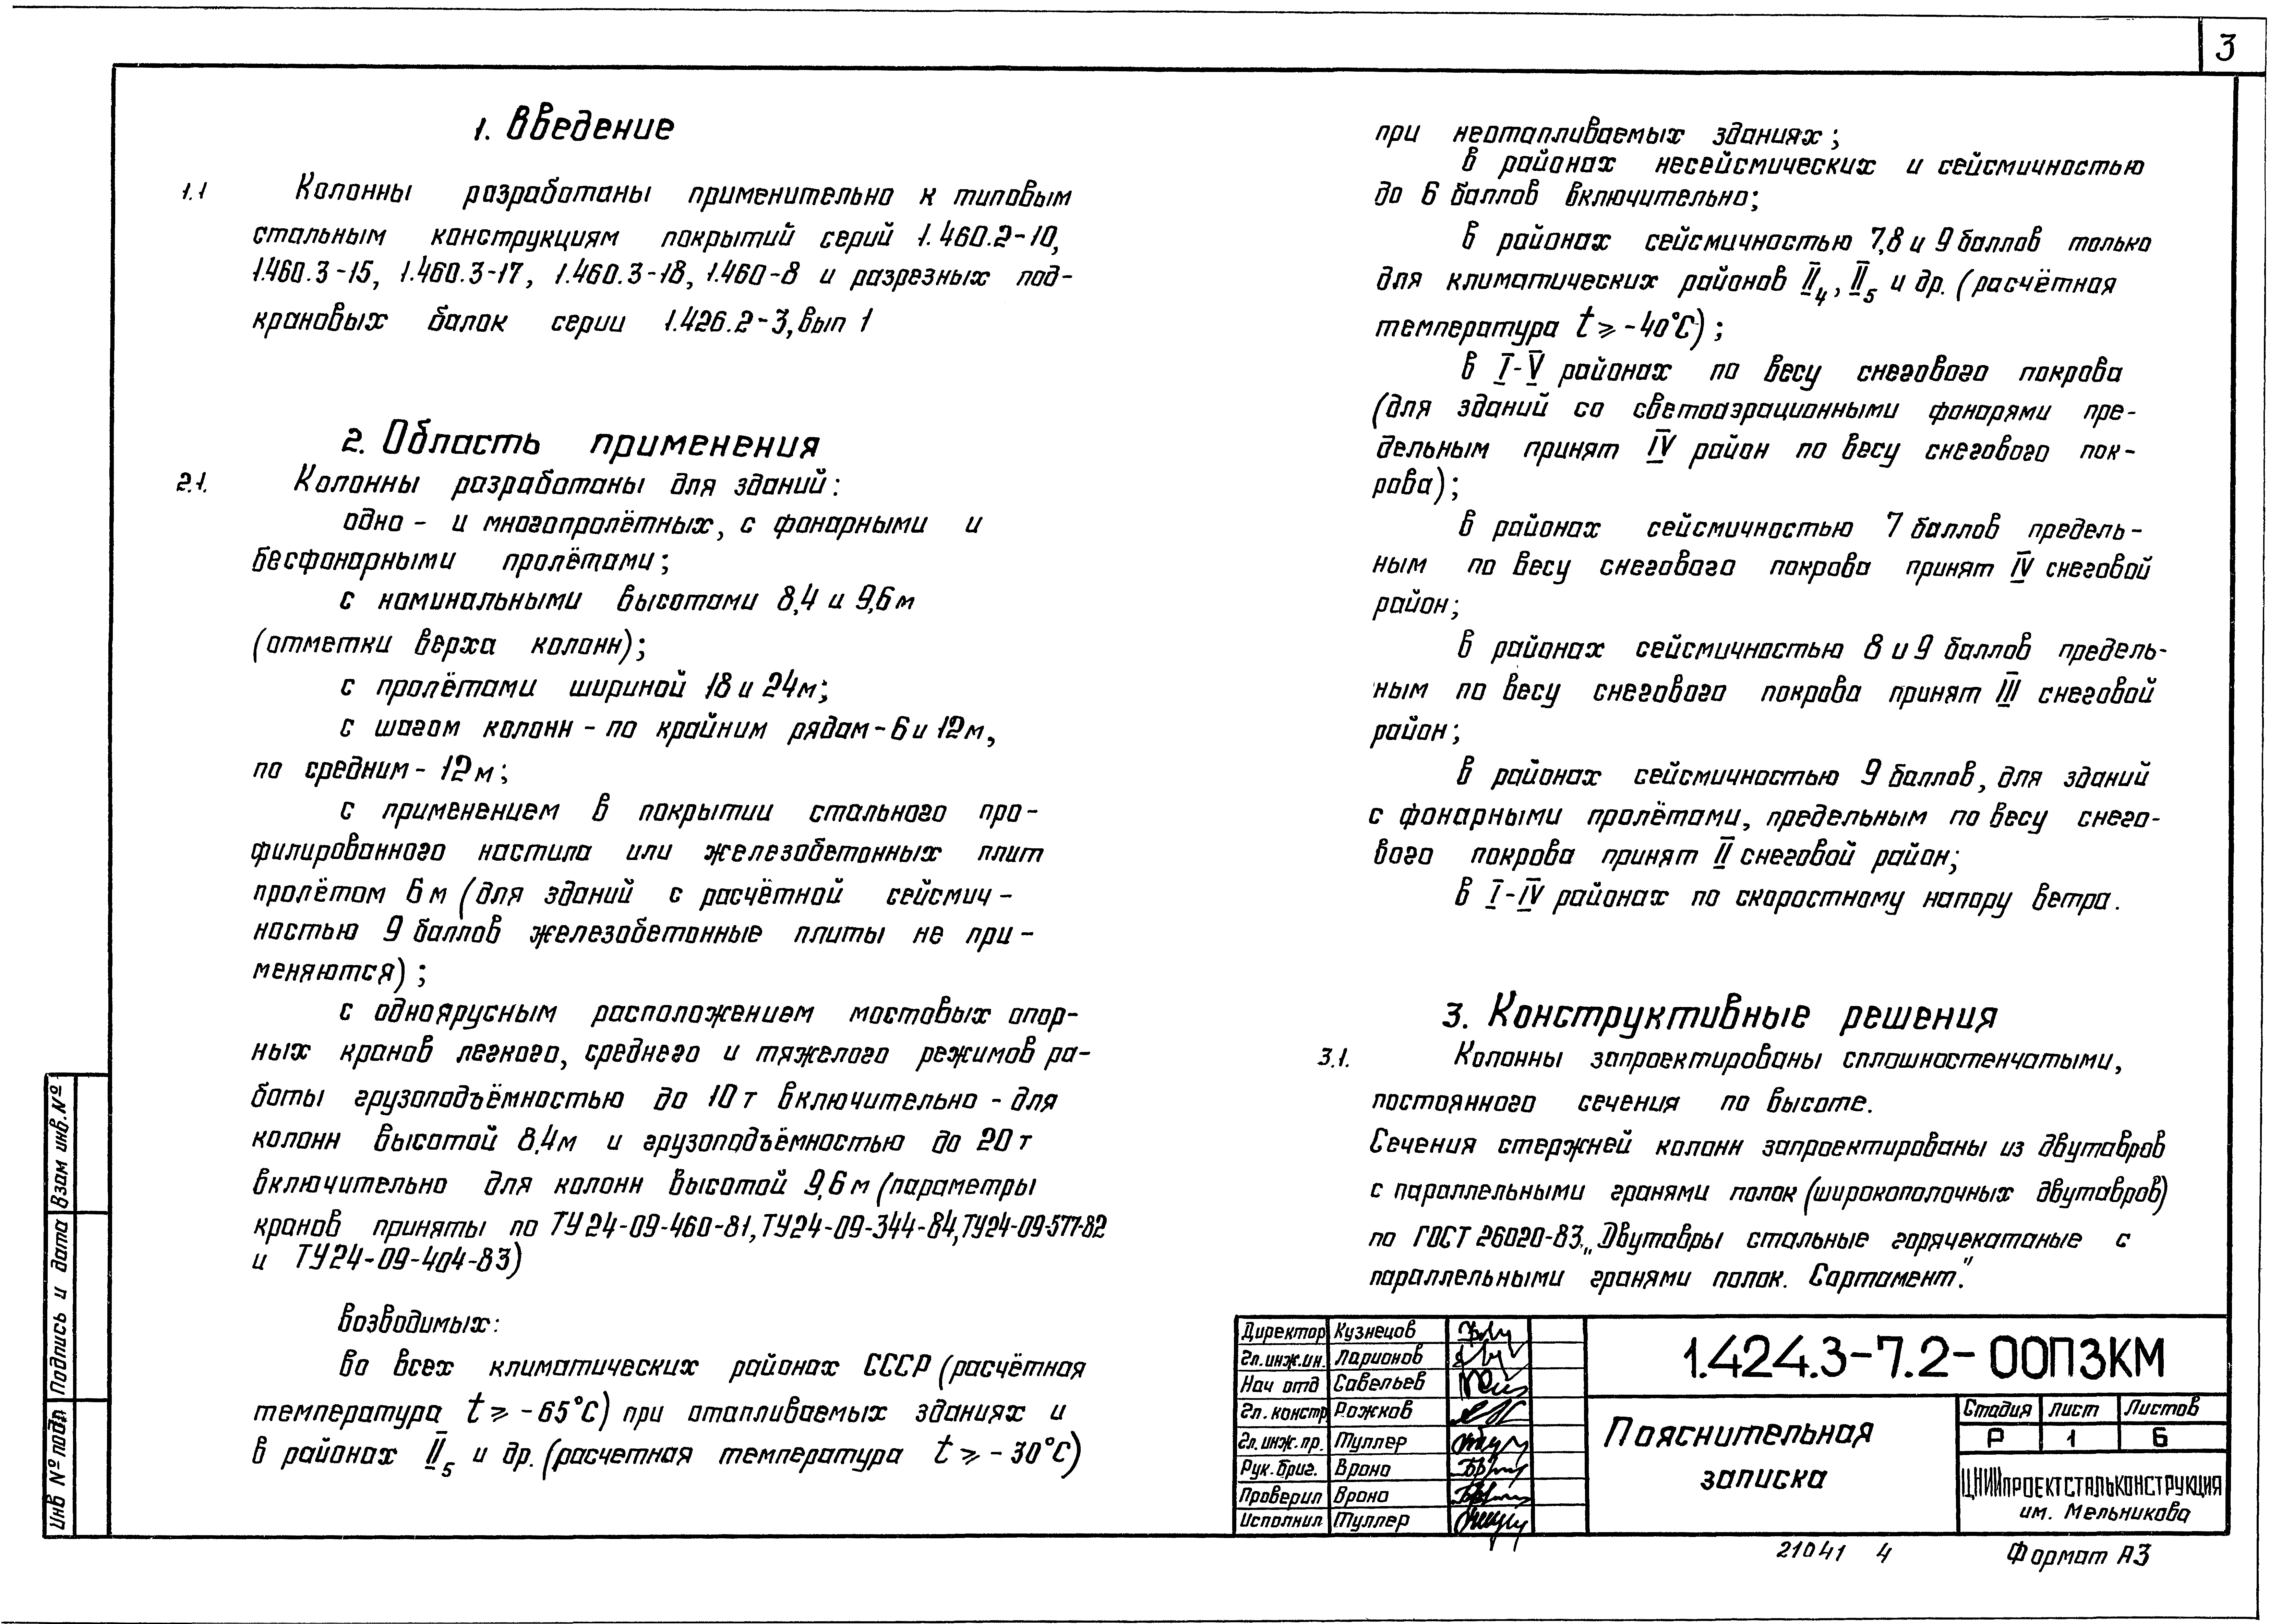 3
1. Введение
1.1 Колонны разработаны применительно к типовым
стальным конструкциям покрытий серий 1.460.2-10,
1.460.3-15, 1.460.3-17, 1.460.3-18, 1.460-8 и разрезных под-
крановых балок серии 1.426.2-3, вып 1
2. Область применения
2.1. Колонны разработаны для зданий:
одно - и многопролётных, с фонарными и
бесфонарными пролётами;
с номинальными высотами 8,4 и 9,6 м
(отметки верха колонн);
с пролётами шириной 18 и 24м;
с шагом колонн - по крайним рядам - 6 и 12м,
по средним - 12 м;
с применением в покрытии стального про-
филированного настила или железобетонных плит
пролётом 6 м (для зданий с расчётной сейсмич-
ностью 9 баллов железобетонные плиты не при-
меняются);
с одноярусным расположением мостовых опор-
ных кранов легкого, среднего и тяжелого режимов ра-
боты грузоподъёмностью до 10 т включительно - для
колонн высотой 8,4м и грузоподъёмностью до 20 т
включительно для колонн высотой 9,6 м (параметры
кранов приняты по ТУ 24-09-460-81, ТУ24-09-344-84, ТУ24-09-577-82
и ТУ24-09-404-83)
возводимых:
во всех климатических районах СССР (расчётная
температура t ⩾ -65°С) при отапливаемых зданиях и
в районах II₅ и др. (расчетная температура t ⩾ -30°С)
при неотапливаемых зданиях;
в районах несейсмических и сейсмичностью
до 6 баллов включительно;
в районах сейсмичностью 7,8 и 9 баллов только
для климатических районов II₄, II₅ и др. (расчётная
температура t ⩾ -40°С);
в I-V районах по весу снегового покрова
(для зданий со светоаэрационными фонарями пре-
дельным принят IV район по весу снегового пок-
рова);
в районах сейсмичностью 7 баллов предель-
ным по весу снегового покрова принят IV снеговой
район;
в районах сейсмичностью 8 и 9 баллов предель-
ным по весу снегового покрова принят III снеговой
район;
в районах сейсмичностью 9 баллов, для зданий
с фонарными пролётами, предельным по весу снего-
вого покрова принят II снеговой район;
в I-IV районах по скоростному напору ветра.
3. Конструктивные решения
3.1. Колонны запроектированы сплошностенчатыми,
постоянного сечения по высоте.
Сечения стержней колонн запроектированы из двутавров
с параллельными гранями полок (широкополочных двутавров)
по ГОСТ 26020-83 „Двутавры стальные горячекатаные с
параллельными гранями полок. Сортамент."
Директор Кузнецов
Гл.инж.ин. Ларионов
Нач отд Савельев
Гл. констр Рожков
Гл. инж. пр. Туллер
Рук. бриг. Врона
Проверил Врона
Исполнил Туллер
1.424.3-7.2-00ПЗКМ
Пояснительная
записка
Стадия Лист Листов
Р 1 6
ЦНИИпроектстальконструкция
им. Мельникова
21041 4
Формат А3
Инв № подл Подпись и дата Взам инв. №